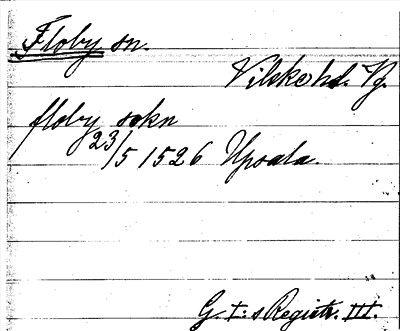 Floby sn.
Vilske hd. Vg.
floby sokn
23/5 1526 Upsala.
G. I:s Registr. III.